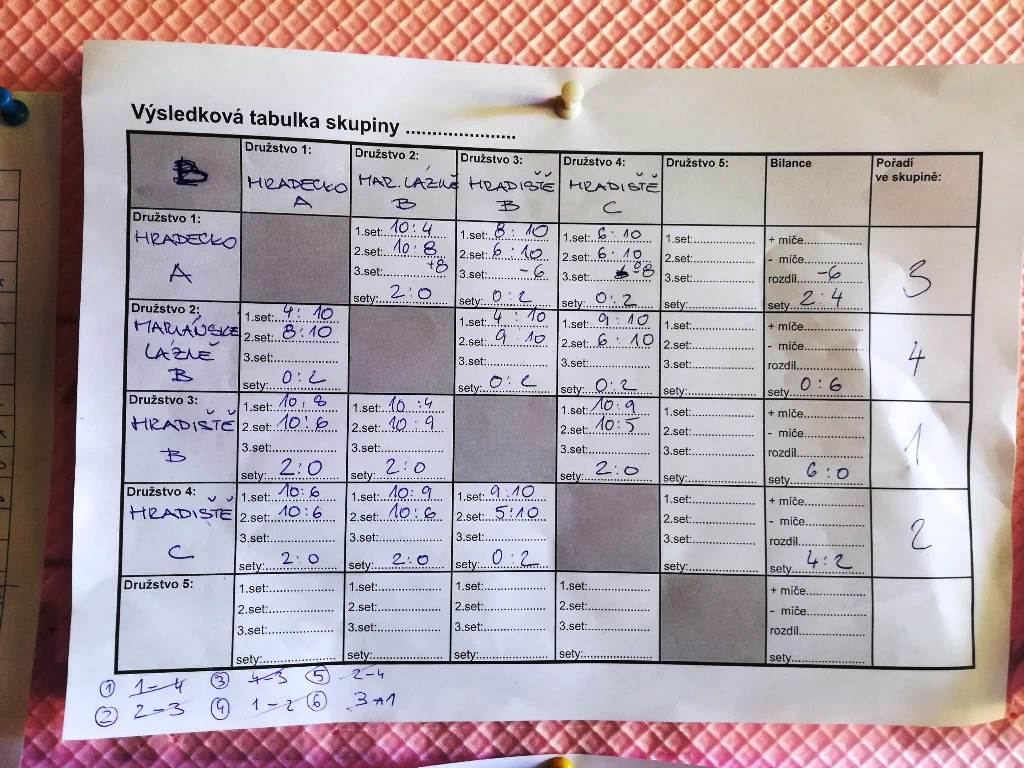 Výsledková tabulka skupiny .....................
B
Družstvo 1:
HRADECKO
A
Družstvo 2:
MAR. LÁZNĚ
B
Družstvo 3:
HRADIŠTĚ
B
Družstvo 4:
HRADIŠTĚ
C
Družstvo 5:
Bilance
Pořadí
ve skupině:
Družstvo 1:
HRADECKO
A
1.set: 10:4
2.set: 10:8
3.set: +8
sety: 2:0
1.set: 8:10
2.set: 6:10
3.set: -6
sety: 0:2
1.set: 6:10
2.set: 6:10
3.set: -8
sety: 0:2
1.set:
2.set:
3.set:
sety:
+ míče
- míče
rozdíl -6
sety 2:4
3
Družstvo 2:
MARIÁNSKÉ
LÁZNĚ
B
1.set: 4:10
2.set: 8:10
3.set:
sety: 0:2
1.set: 4:10
2.set: 9:10
3.set:
sety: 0:2
1.set: 9:10
2.set: 6:10
3.set:
sety: 0:2
1.set:
2.set:
3.set:
sety:
+ míče
- míče
rozdíl
sety 0:6
4
Družstvo 3:
HRADIŠTĚ
B
1.set: 10:8
2.set: 10:6
3.set:
sety: 2:0
1.set: 10:4
2.set: 10:9
3.set:
sety: 2:0
1.set: 10:9
2.set: 10:5
3.set:
sety: 2:0
1.set:
2.set:
3.set:
sety:
+ míče
- míče
rozdíl
sety 6:0
1
Družstvo 4:
HRADIŠTĚ
C
1.set: 10:6
2.set: 10:6
3.set:
sety: 2:0
1.set: 10:9
2.set: 10:6
3.set:
sety: 2:0
1.set: 9:10
2.set: 5:10
3.set:
sety: 0:2
1.set:
2.set:
3.set:
sety:
+ míče
- míče
rozdíl
sety 4:2
2
Družstvo 5:
1.set:
2.set:
3.set:
sety:
1.set:
2.set:
3.set:
sety:
1.set:
2.set:
3.set:
sety:
1.set:
2.set:
3.set:
sety:
+ míče
- míče
rozdíl
sety
① 1-4 ③ 4-3 ⑤ 2-4
② 2-3 ④ 1-2 ⑥ 3-1